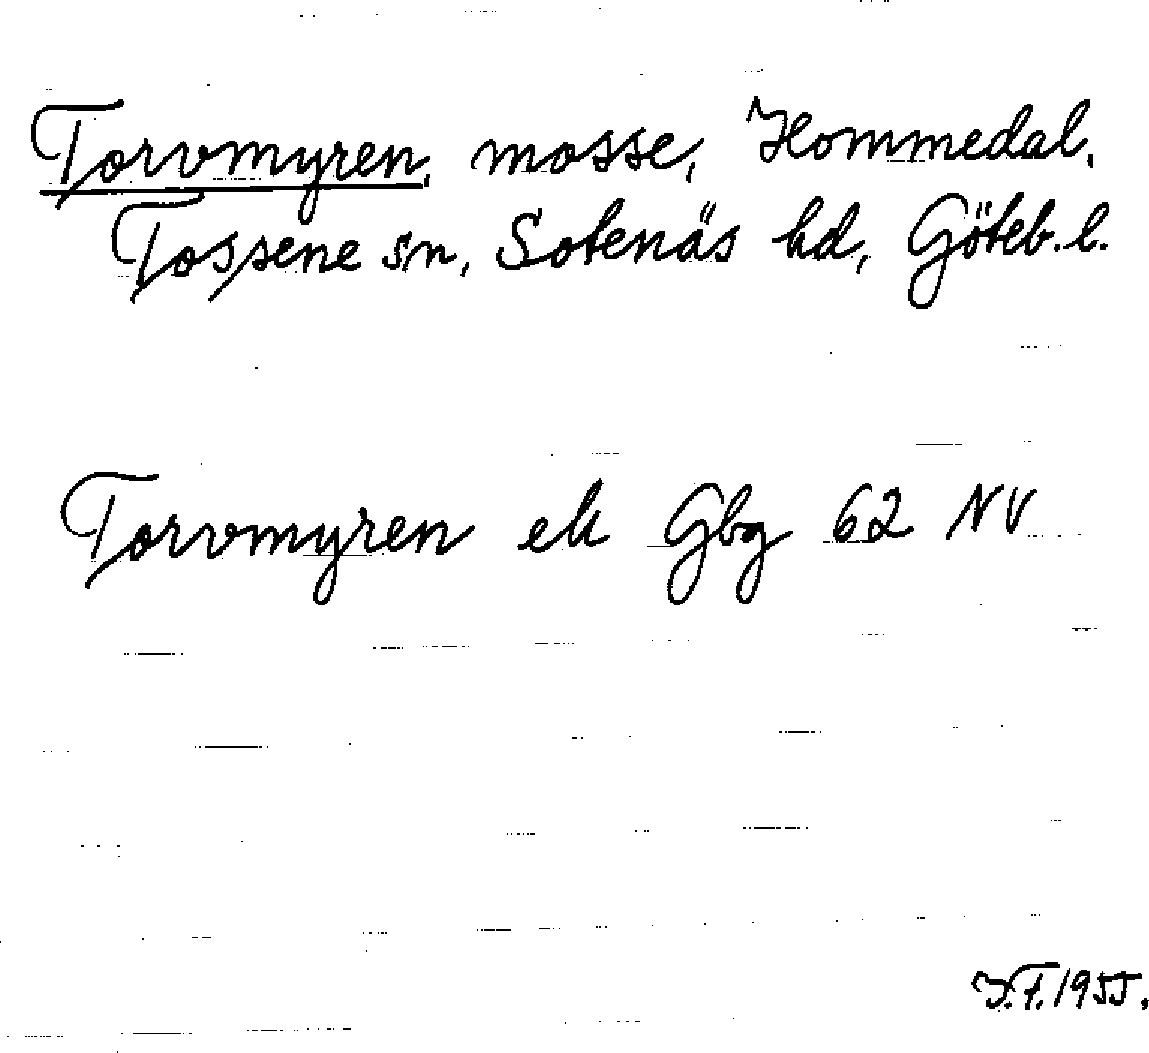 Torvmyren, mosse, Hommedal,
Tossene sn, Sotenäs hd, Göteb. l.
Torvmyren ek Gbg 62 NV
1955.